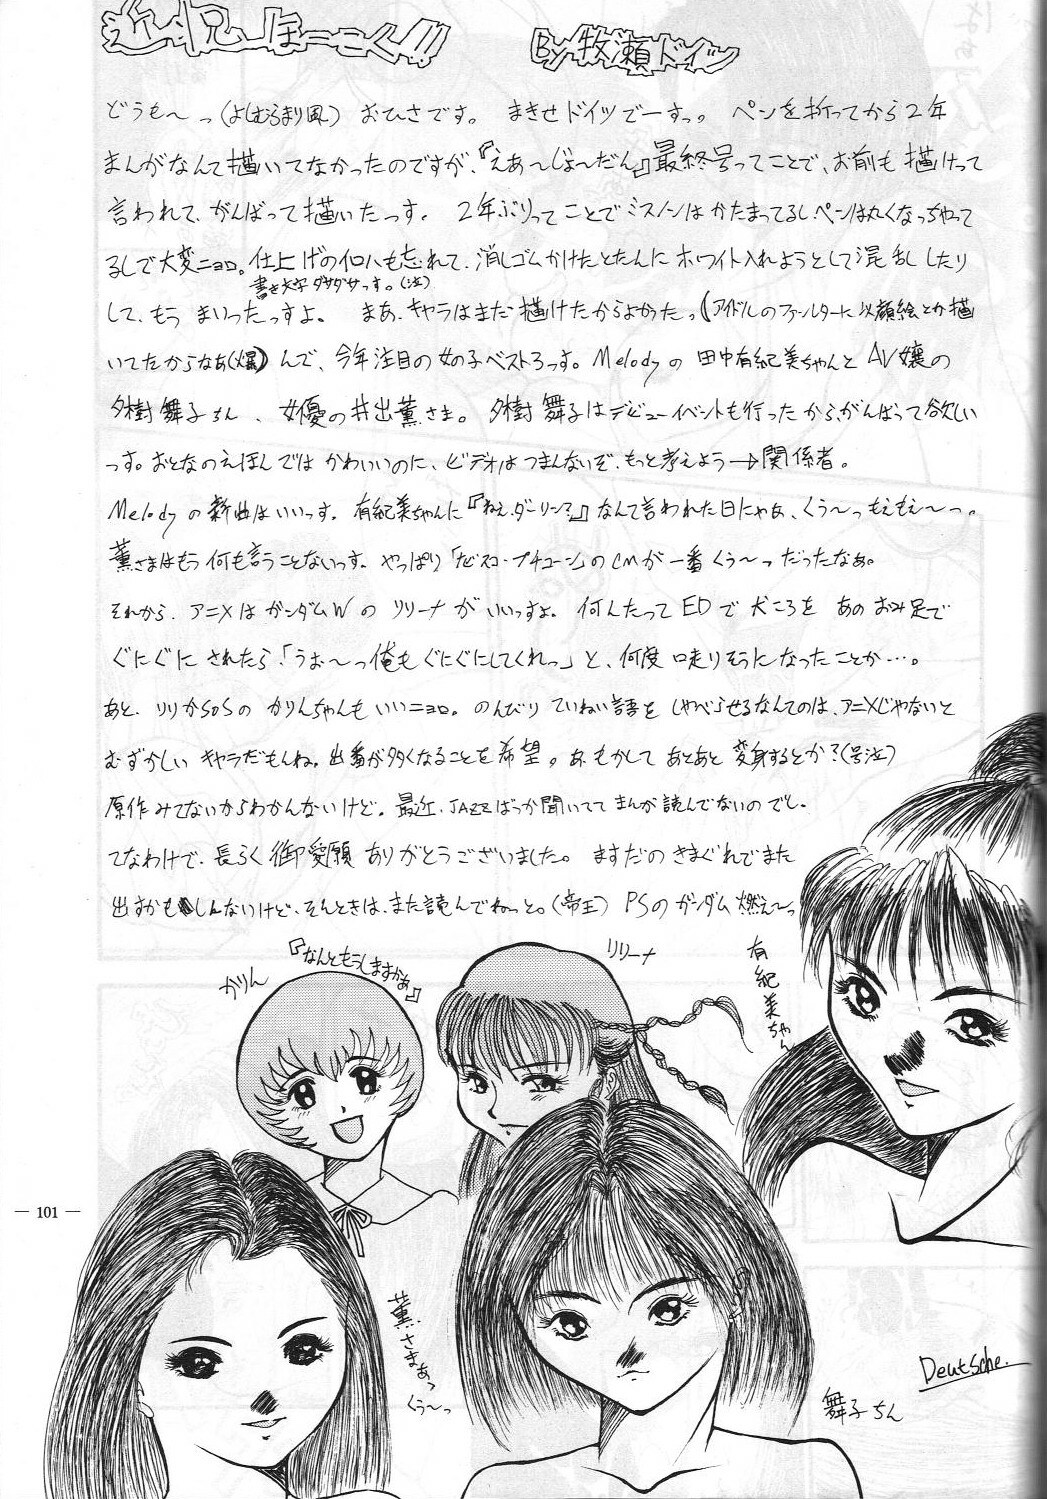 近況ほーこく!! By 牧瀬ドイツ
どうも〜っ(よしむらまり風) おひさです。 まきせドイツでーすっ。 ペンを折ってから2年
まんがなんて描いてなかったのですが、『えあ〜じょ〜だん』最終号ってことで、お前も描けって
言われて、がんばって描いたっす。 2年ぶりってことでミスノンはかたまってるしペンは丸くなっちゃって
るしで大変ニョロ。仕上げのイロハも忘れて、消しゴムかけたとたんにホワイト入れようとして混乱したり
書き文字ダサダサっす。(泣)
して、もうまいったっすよ。 まあ、キャラはまだ描けたからよかったっ(アイドルのファンレターに似顔絵とか描
いてたからなあ(爆)) んで、今年注目の女の子ベスト3っす。Melodyの田中有紀美ちゃんとAV嬢の
夕樹舞子ちん、女優の井出薫さま。夕樹舞子はデビューイベントも行ったから、がんばって欲しい
っす。おとなのえほんではかわいいのに、ビデオはつまんないぞ、もっと考えよう→関係者。
Melodyの新曲はいいっす。有紀美ちゃんに『ねえ、ダーリン?』なんて言われた日にゃあ、くう〜っもえもえ〜っ。
薫さまはもう何も言うことないっす。やっぱり「ナビスコ・プチューン」のCMが一番くう〜っだったなあ。
それから、アニメはガンダムWのリリーナがいいっすよ。何んたってEDで犬ころをあのおみ足で
ぐにぐにされたら「うぉ〜っ俺もぐにぐにしてくれっ」と、何度口走りそうになったことか…。
あと、リリカSOSのかりんちゃんもいいニョロ。のんびりていねい語をしゃべらせるなんてのは、アニメじゃないと
むずかしいキャラだもんね。出番が多くなることを希望。あ、もかしてあとあと変身するとか?(号泣)
原作みてないからわかんないけど。最近、JAZZばっか聞いててまんが読んでないのでし。
てなわけで、長らく御愛願ありがとうございました。ますだのきまぐれでまた
出すかもしんないけど、そんときは、また読んでねっと。(帝王) PSのガンダム燃え〜っ
かりん
『なんともうしますかぁ』
リリーナ
有紀美ちゃん
薫さまぁっ
くう〜っ
舞子ちん
Deutsche.
— 101 —